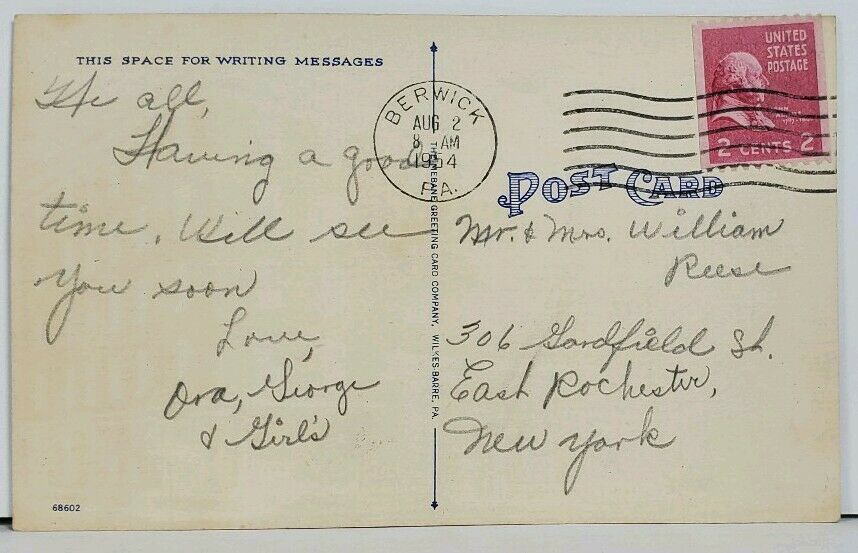 THIS SPACE FOR WRITING MESSAGES
Hi all,
Having a good
time. Will see
you soon
Love,
Ora, George
& Girl's
68602
BERWICK
AUG 2
8 AM
1954
PA.
GREETING CARD COMPANY, WILKES-BARRE, PA.
UNITED
STATES
POSTAGE
2 CENTS 2
POST CARD
Mr. & Mrs. William
Reese
306 Gardfield St.
East Rochester,
New York